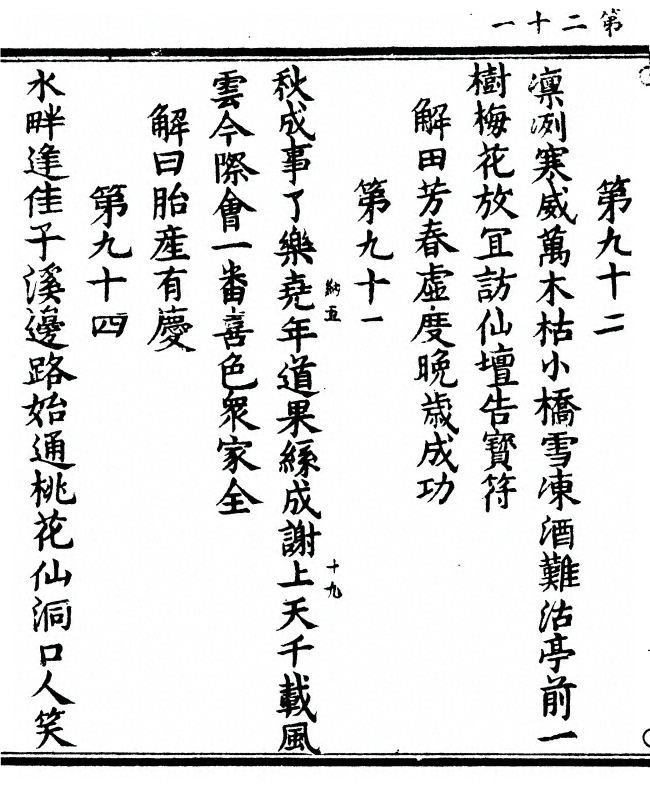 第二十一
第九十二
凜冽寒威萬木枯小橋雪凍酒難沽亭前一
樹梅花放冝訪仙壇告寶符
解田芳春虛度晚歲成功
第九十一
納
十九
秋成事了樂堯年道果緜成謝上天千載風
雲今際會一番喜色衆家全
解曰胎產有慶
第九十四
水畔逢佳子溪邊路始通桃花仙洞口人笑